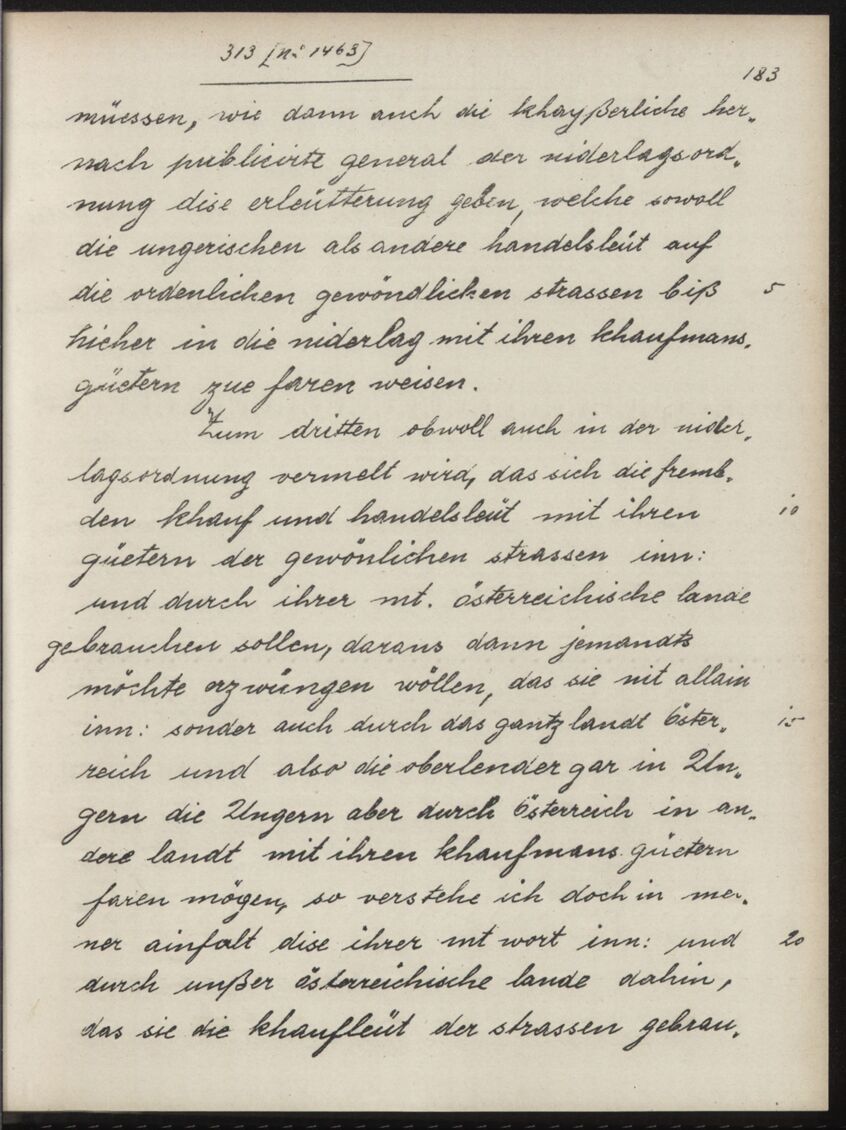 313 [nº 1463]
183
müessen, wie dann auch die khayßerliche her„
nach publicirte general der niderlagsord„
nung dise erleütterung geben, welche sowoll
die ungerischen als andere handelsleüt auf
die ordenlichen gewöndlichen strassen biß 5
hieher in die niderlag mit ihren khaufmans„
güetern zue faren weisen.
Zum dritten obwoll auch in der nider„
lagsordnung vermelt wird, das sich die fremb„
den khauf und handelsleüt mit ihren 10
güetern der gewönlichen strassen inn:
und durch ihrer mt. österreichische lande
gebrauchen sollen, daraus dann jemandts
möchte erzwüngen wöllen, das sie nit allain
inn: sonder auch durch das gantz landt Öster„ 15
reich und also die oberlender gar in Un„
gern die Ungern aber durch Österreich in an„
dere landt mit ihren khaufmans güetern
faren mögen, so verstehe ich doch in mei„
ner ainfalt dise ihrer mt wort inn: und 20
durch unßer österreichische lande dahin,
das sie die khaufleüt der strassen gebrau„